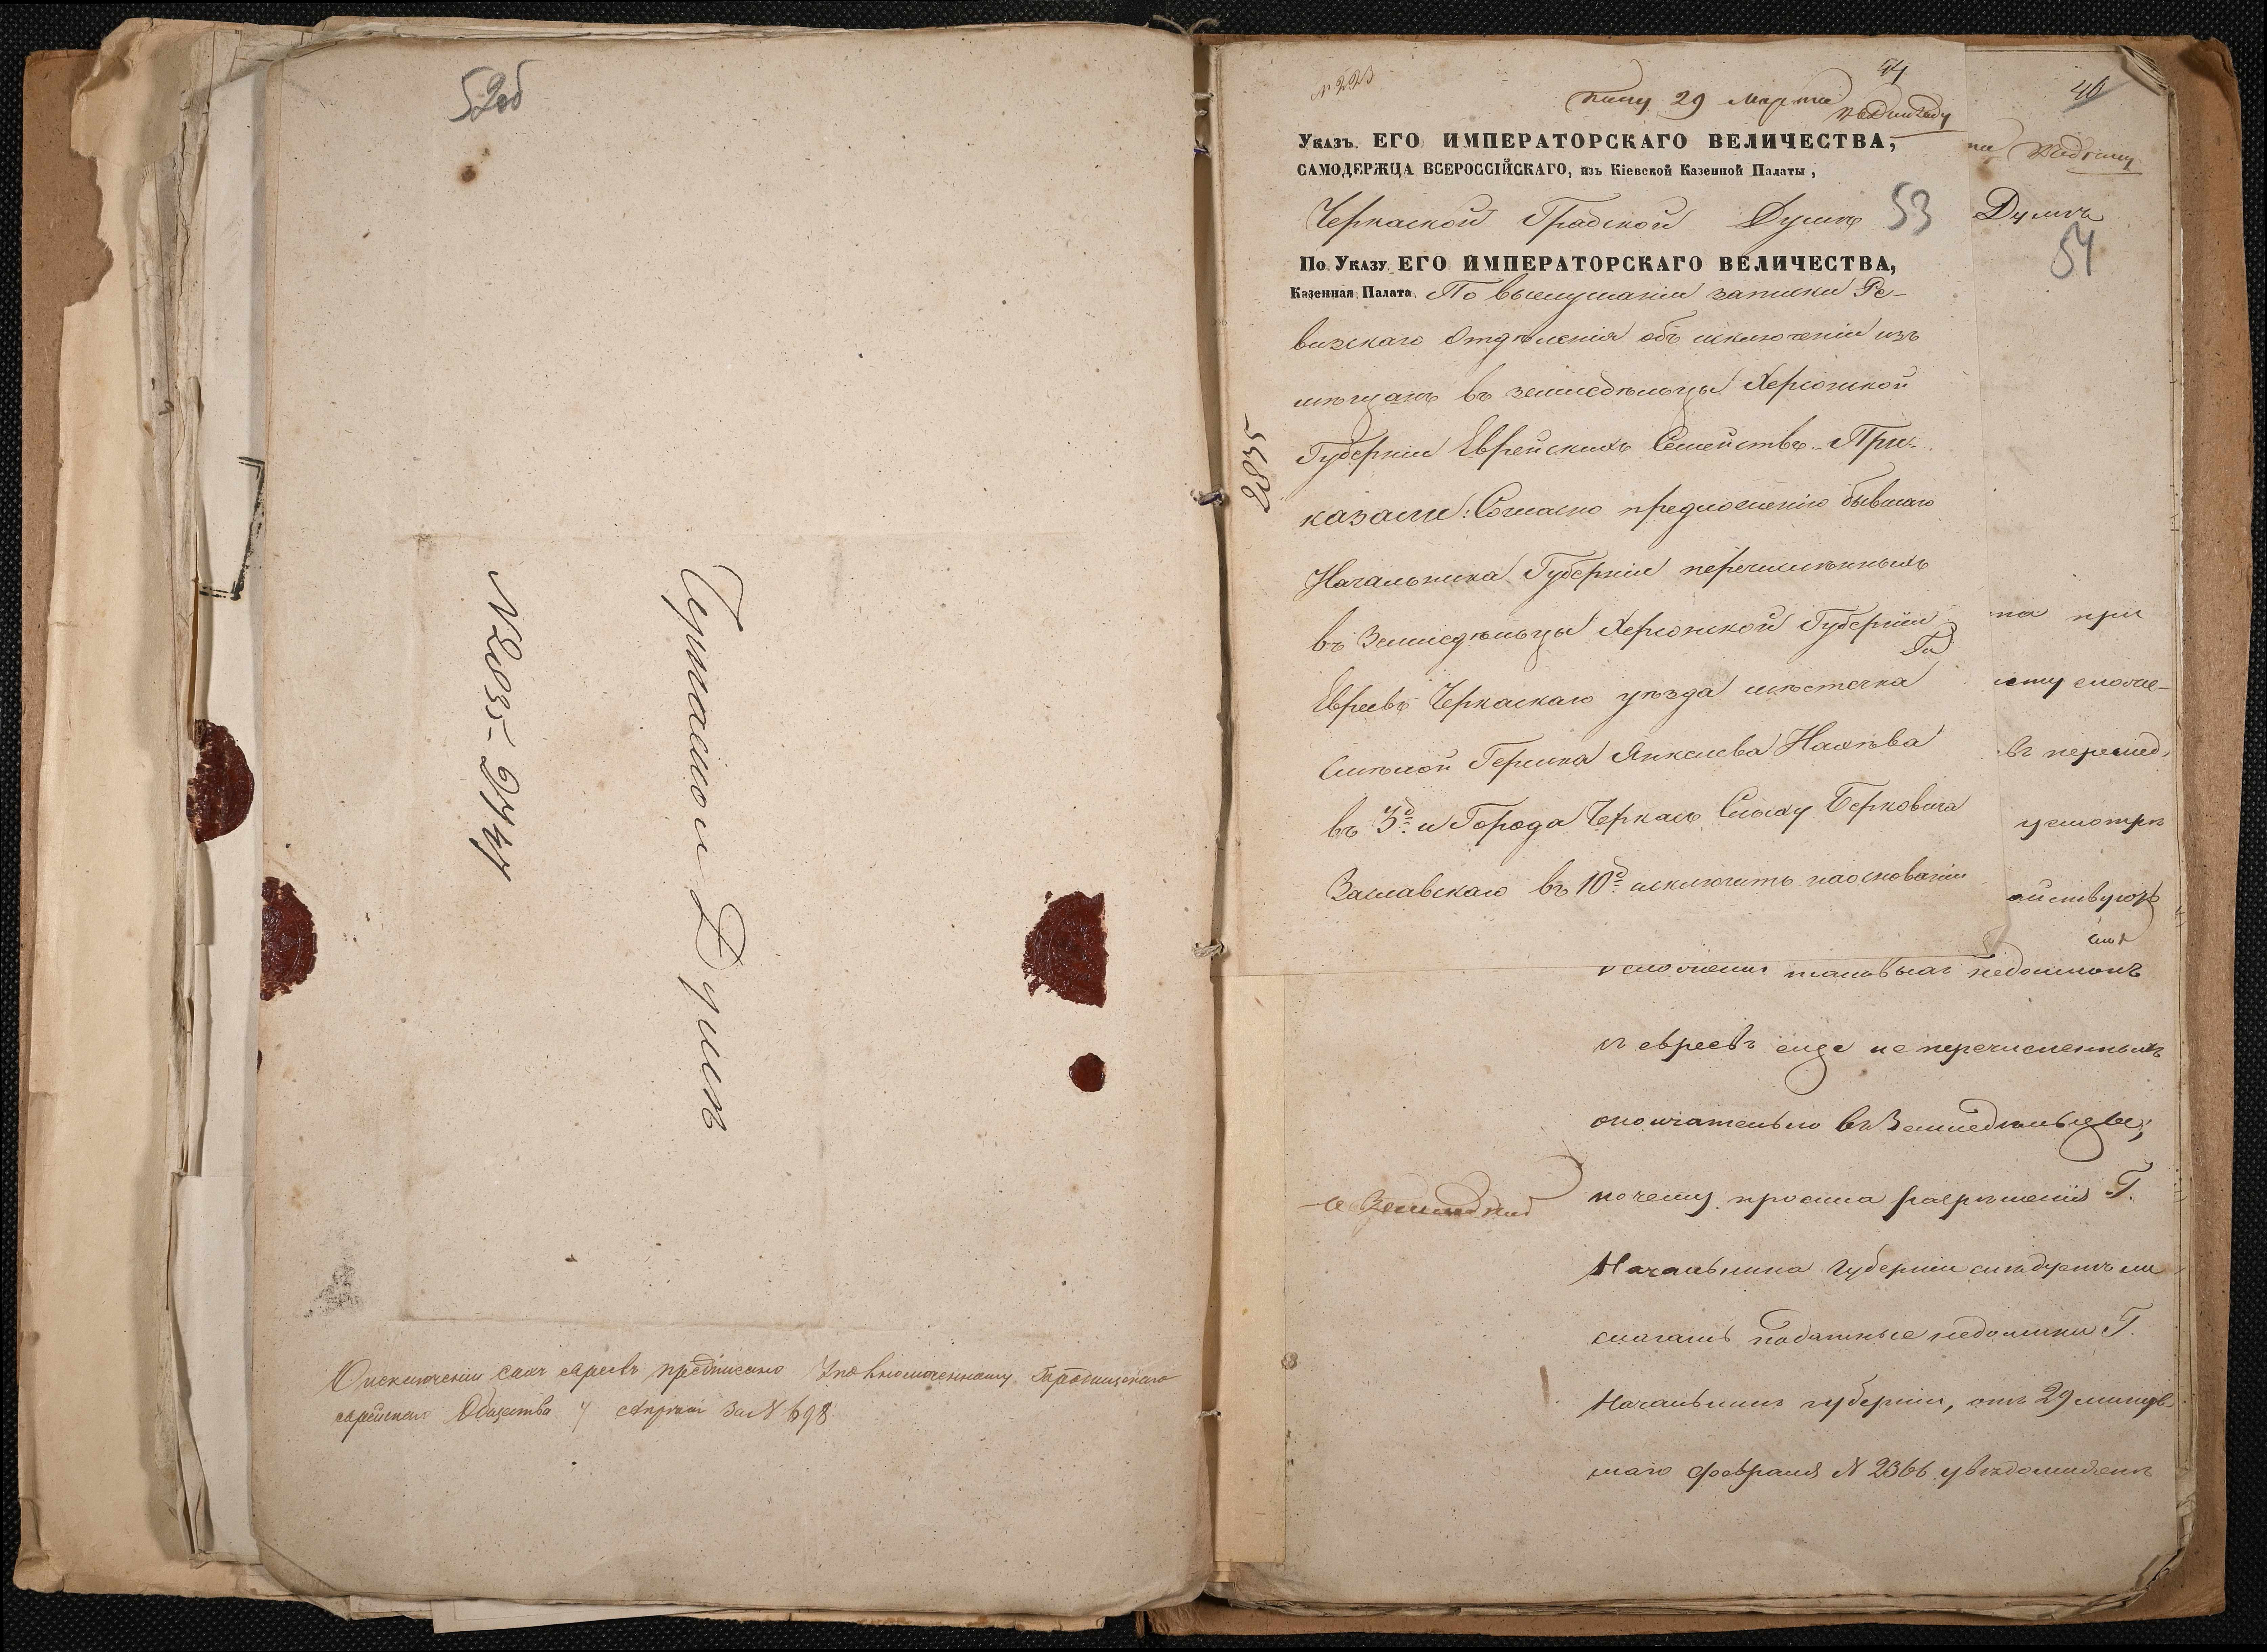 52об
Черкаской Думѣ
№ 2035 - 9744
О исключеніи сихъ евреевъ предписано Уполномоченному Городищскаго
еврейскаго Общества 4 Апрѣля за № 698
№ 223
44
29 Марта
УКАЗЪ ЕГО ИМПЕРАТОРСКАГО ВЕЛИЧЕСТВА,
САМОДЕРЖЦА ВСЕРОССІЙСКАГО, изъ Кіевской Казенной Палаты,
Черкаской Градской Думѣ 53
По УКАЗУ ЕГО ИМПЕРАТОРСКАГО ВЕЛИЧЕСТВА,
Казенная Палата По выслушаніи записки Ре-
визскаго Отдѣленія объ исключеніи изъ
мѣщанъ въ земледѣльцы Херсонской
Губерніи Еврейскихъ Семействъ. При-
казали: Согласно предложенію бывшаго
Начальника Губерніи перечисленныхъ
въ Земледѣльцы Херсонской Губерніи
Евреевъ Черкаскаго уѣзда мѣстечка
Смѣлой Гершка Янкелева
въ 3д. и Города Черкасъ Сроля Берковича
Заславскаго въ 10д. исключить на основаніи
5582
40
Думѣ
54
на при
ему сложе-
въ перешед
усмотрѣ
ействую
о сложеніи таковыхъ недоимокъ
съ евреевъ еще не перечисленныхъ
окончательно въ Земледѣльцы;
почему просила разрѣшенія Г.
Начальника Губерніи слѣдуетъ ли
слагать податные недоимки Г.
Начальникъ губерніи, отъ 29 минув-
шаго февраля № 2366 увѣдомляетъ